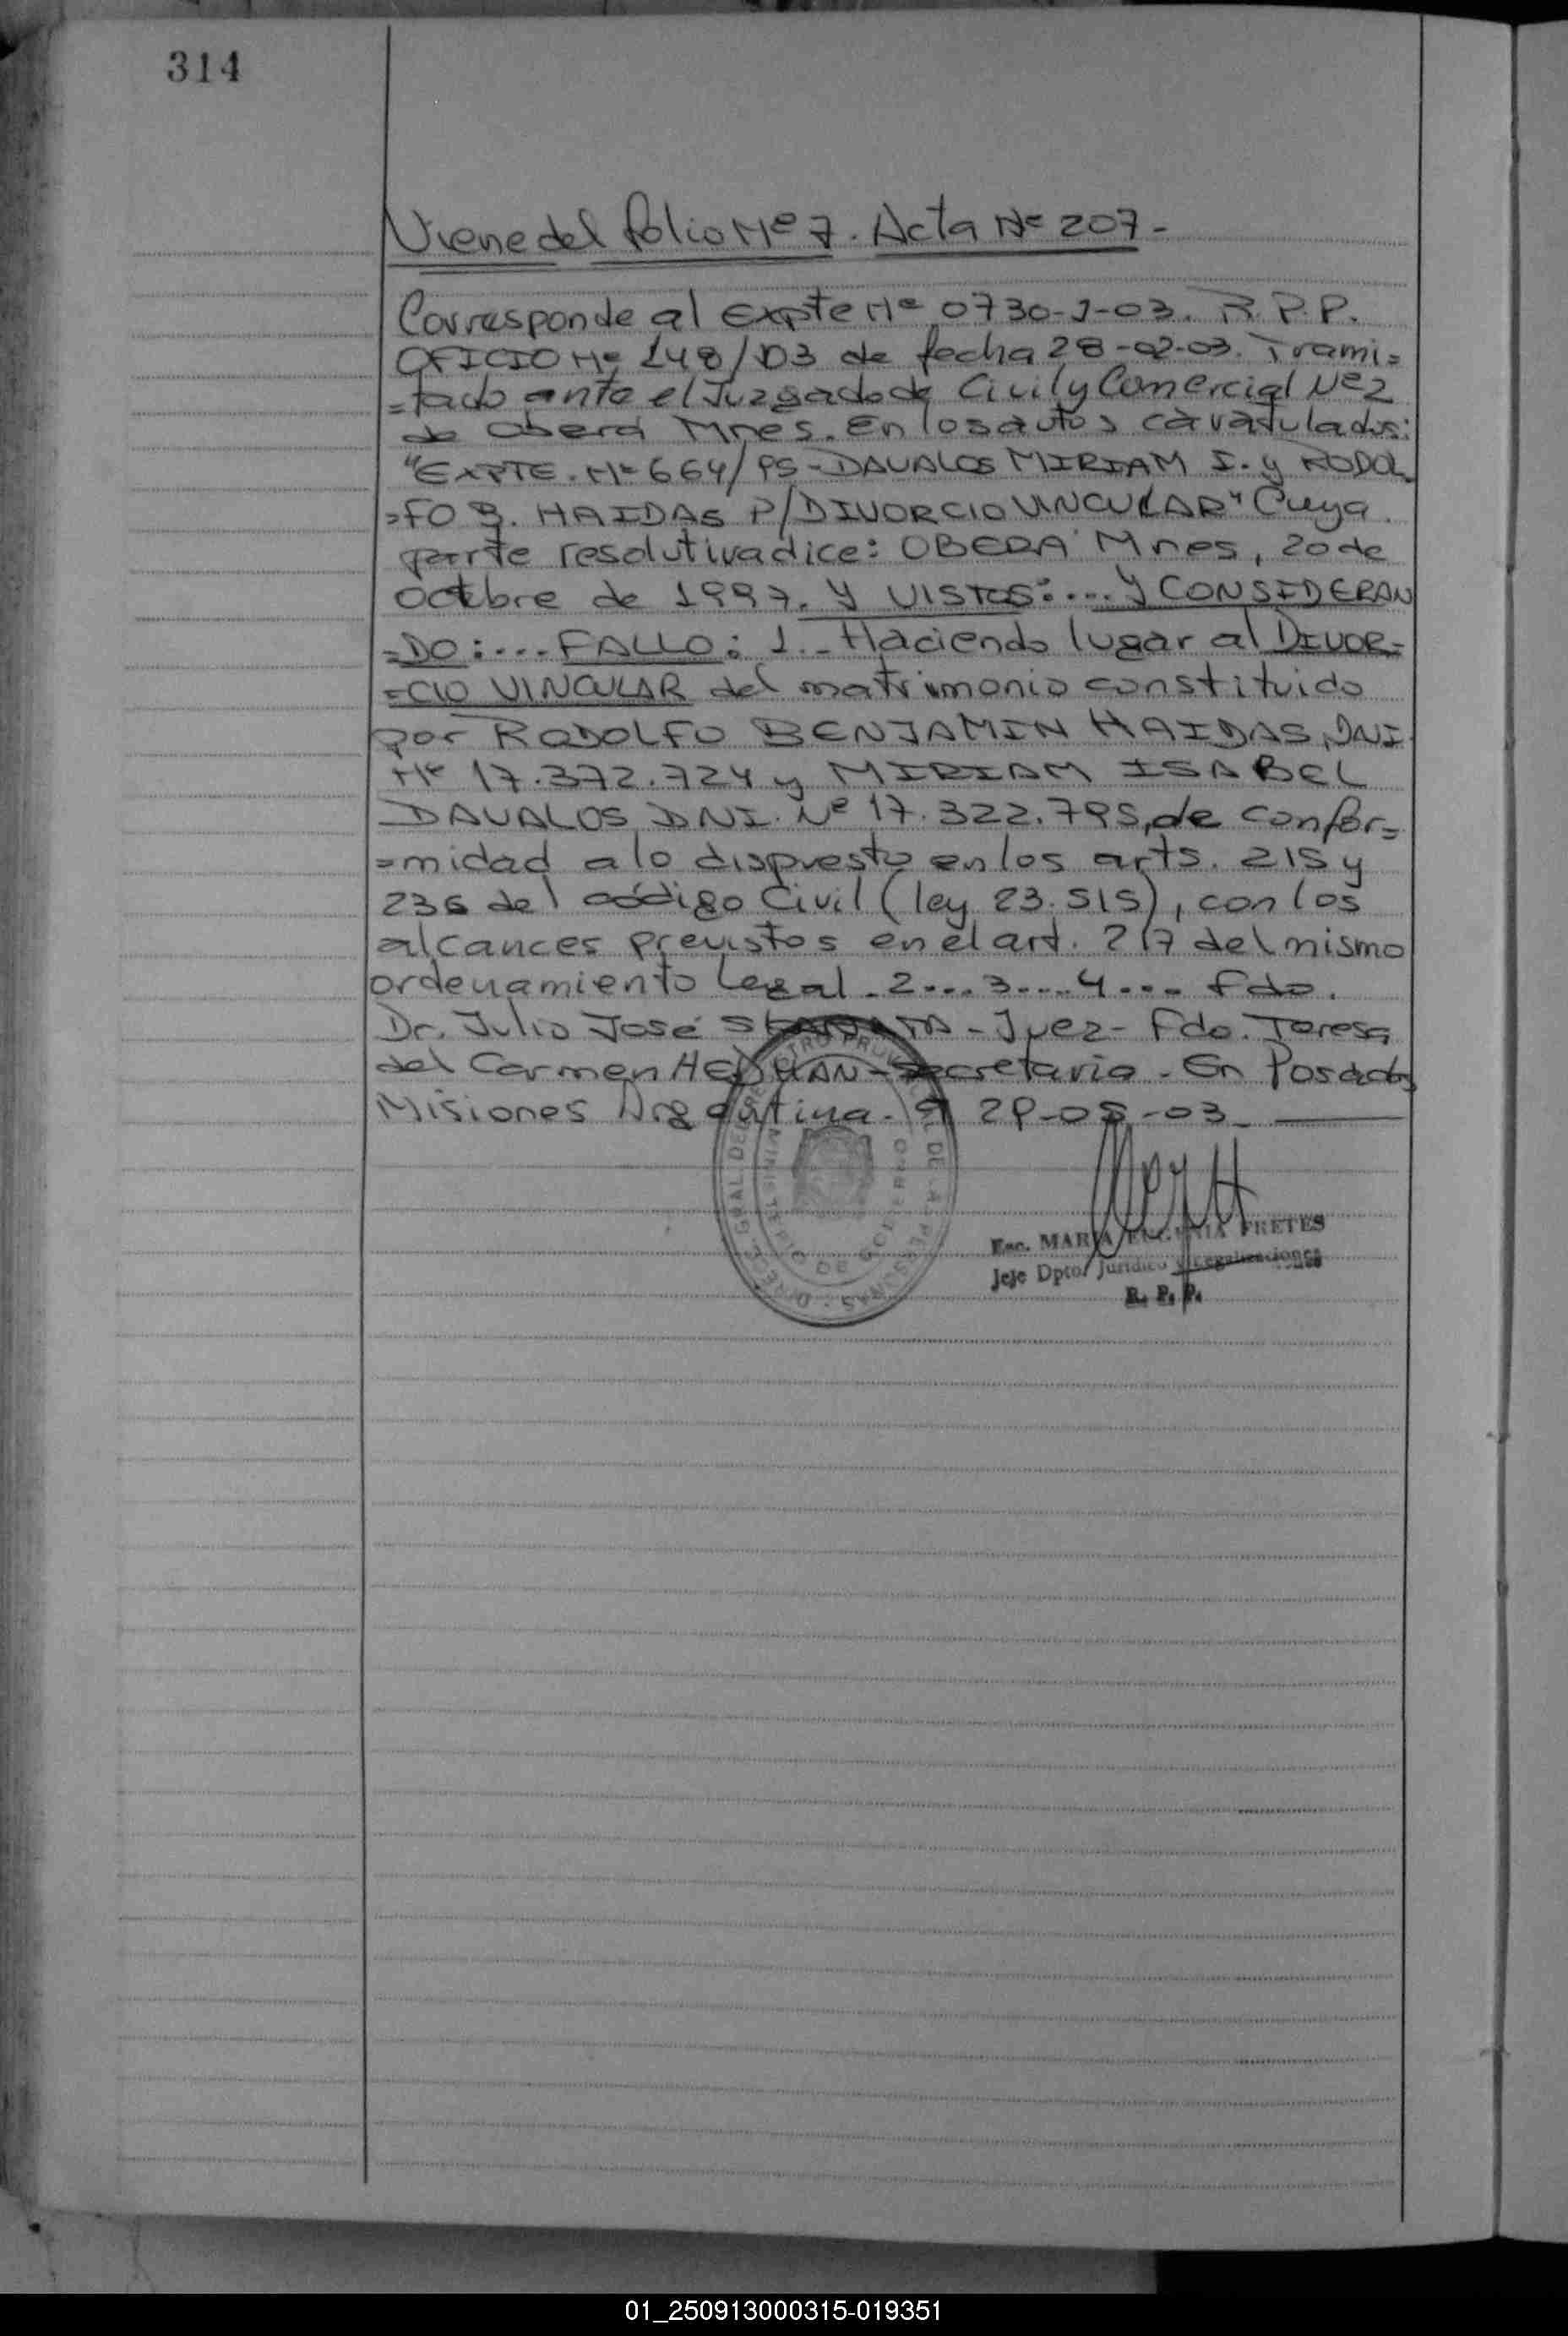 314
Viene del folio Nº 7. Acta Nº 207-
Corresponde al Expte Nº 0730-J-03. R.P.P.
OFICIO Nº 148/03 de fecha 28-02-03. Trami=
=tado ante el Juzgado de Civil y Comercial Nº 2
de Oberá Mnes. En los autos caratulados:
"EXPTE. Nº 664/95-DAVALOS MIRIAM I. y RODOL
=FO B. HAIDAS P/DIVORCIO VINCULAR" Cuya
parte resolutiva dice: OBERA Mnes, 20 de
octubre de 1997. Y VISTOS:.... Y CONSIDERAN
=DO:.... FALLO: 1.- Haciendo lugar al DIVOR=
=CIO VINCULAR del matrimonio constituido
por RODOLFO BENJAMIN HAIDAS, DNI.
Nº 17.372.724 y MIRIAM ISABEL
DAVALOS DNI. Nº 17.322.795, de confor=
=midad a lo dispuesto en los arts. 215 y
236 del código Civil (ley 23.515), con los
alcances previstos en el art. 217 del mismo
ordenamiento legal. 2.... 3.... 4.... Fdo.
Dr. Julio José - Juez - Fdo. Teresa
del Carmen HEDMAN - Secretaria - En Posadas
Misiones Argentina - a 29-05-03
DIREC. GRAL. DEL REGISTRO PROVINCIAL DE LAS PERSONAS
MINISTERIO DE GOBIERNO
Esc. MARIA EUGENIA FRETES
Jefe Dpto. Jurídico y Legalizaciones
R. P. P.
01_250913000315-019351